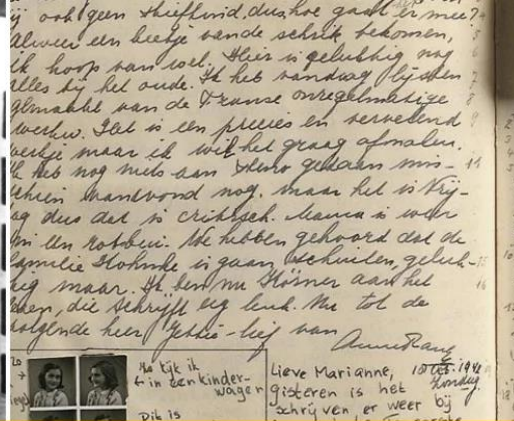 ij ook geen stiefkind, dus hoe gaat er mee?
Alweer een beetje van de schrik bekomen,
ik hoop van wel. Hier is gelukkig nog
alles bij het oude. Ik heb vandaag lijsten
gemaakt van de Franse onregelmatige
werkw. Dat is een precies en vervelend
werkje maar ik wil het graag afmaken.
Ik heb nog niets aan steno gedaan mis-
schien vanavond nog, maar het is Vrij-
ag dus dat is critisch. Mama is weer
De hebben gehoord dat de
familie is gaan schuilen, geluk-
kig maar. Ik ben nu Körner aan het
lezen, die schrijft erg leuk. Nu tot de
volgende keer Jettie-lief van
Anne Frank
kijk ik
in een kinder-
wagen
Dit is
Lieve Marianne,
Zondag
gisteren is het
schrijven er weer bij